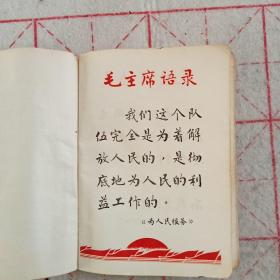 毛主席语录
我们这个队
伍完全是为着解
放人民的，是彻
底地为人民的利
益工作的。
《为人民服务》